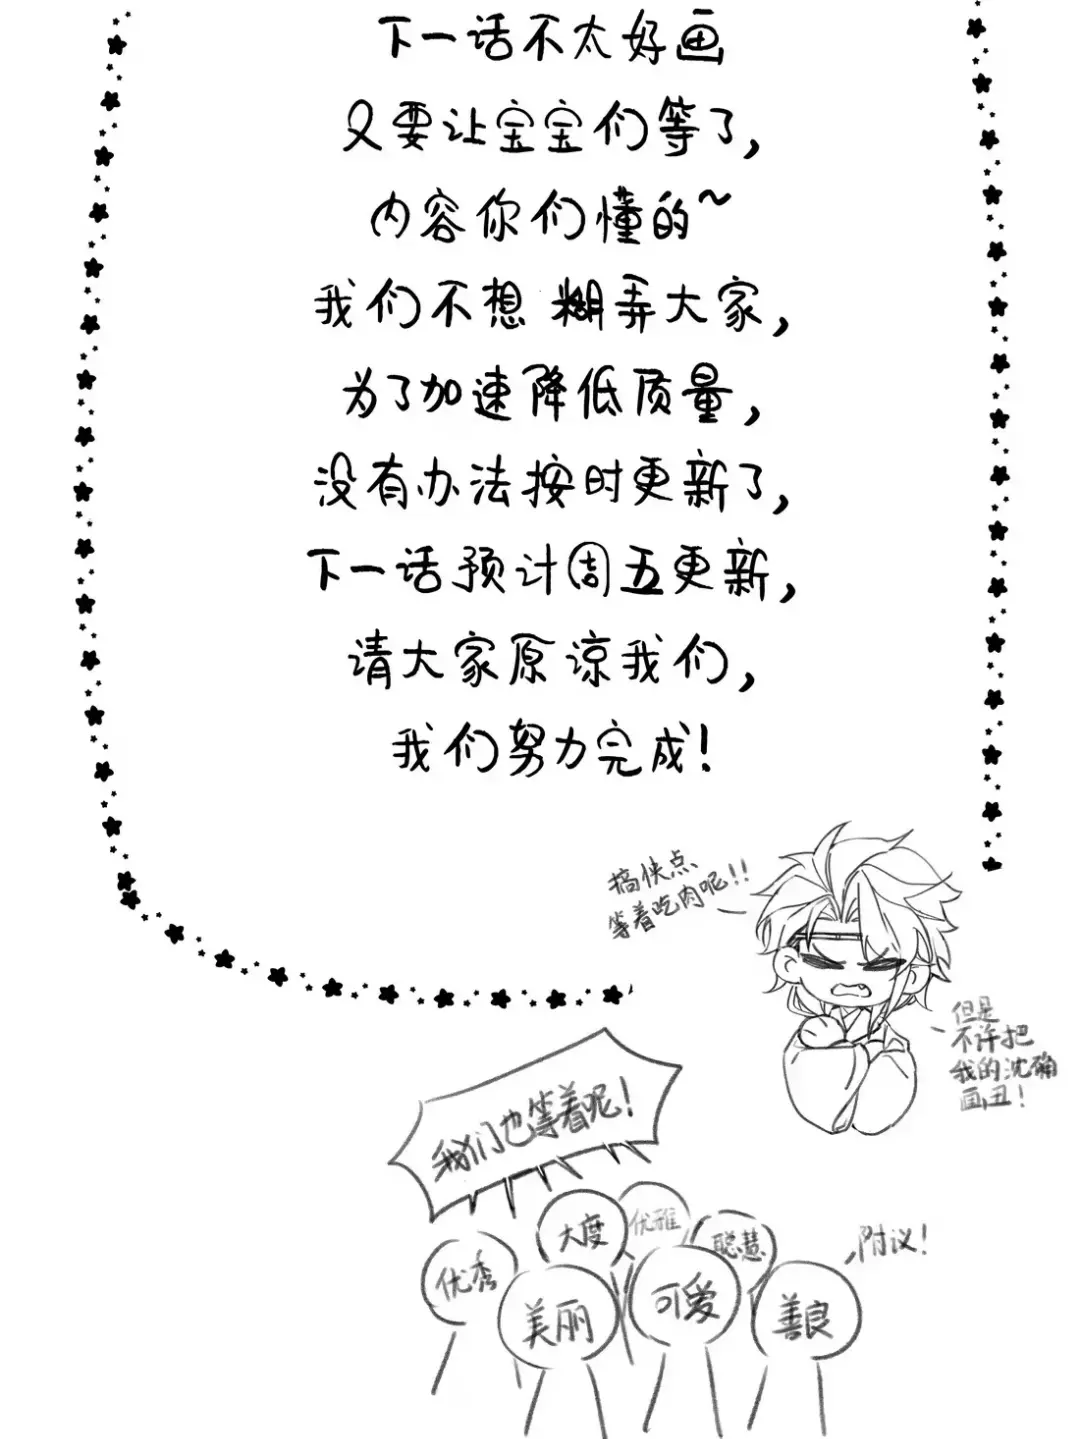 下一话不太好画
又要让宝宝们等了,
内容你们懂的~
我们不想糊弄大家,
为了加速降低质量,
没有办法按时更新了,
下一话预计周五更新,
请大家原谅我们,
我们努力完成!
搞快点
等着吃肉呢!!
但是
不许把
我的沈确
画丑!
我们也等着呢!
优秀
大度
优雅
聪慧
美丽
可爱
善良
附议!